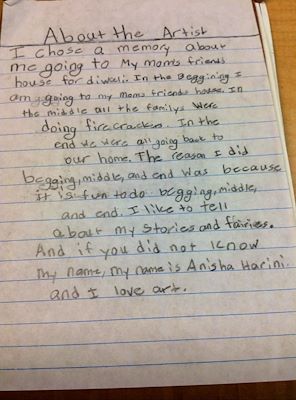 About the Artist
I chose a memory about
me going to My moms friends
house for diwali. In the Beggining I
am going to my moms friends house. In
the middle all the familys were
doing firecrackers. In the
end we were all going back to
our home. The reason I did
begging, middle, and end was because
it is fun to do begging, middle,
and end. I like to tell
about my stories and fairies.
And if you did not know
my name, my name is Anisha Harini.
and I love art.